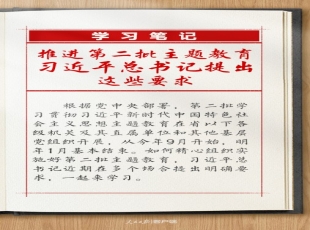 学习笔记
推进第二批主题教育
习近平总书记提出
这些要求
根据党中央部署,第二批学
习贯彻习近平新时代中国特色社
会主义思想主题教育在省以下各
级机关及其直属单位和其他基层
党组织开展,从今年9月开始,明
年1月基本结束。如何精心组织实
施好第二批主题教育,习近平总
书记近期在多个场合提出明确要
求,一起来学习。